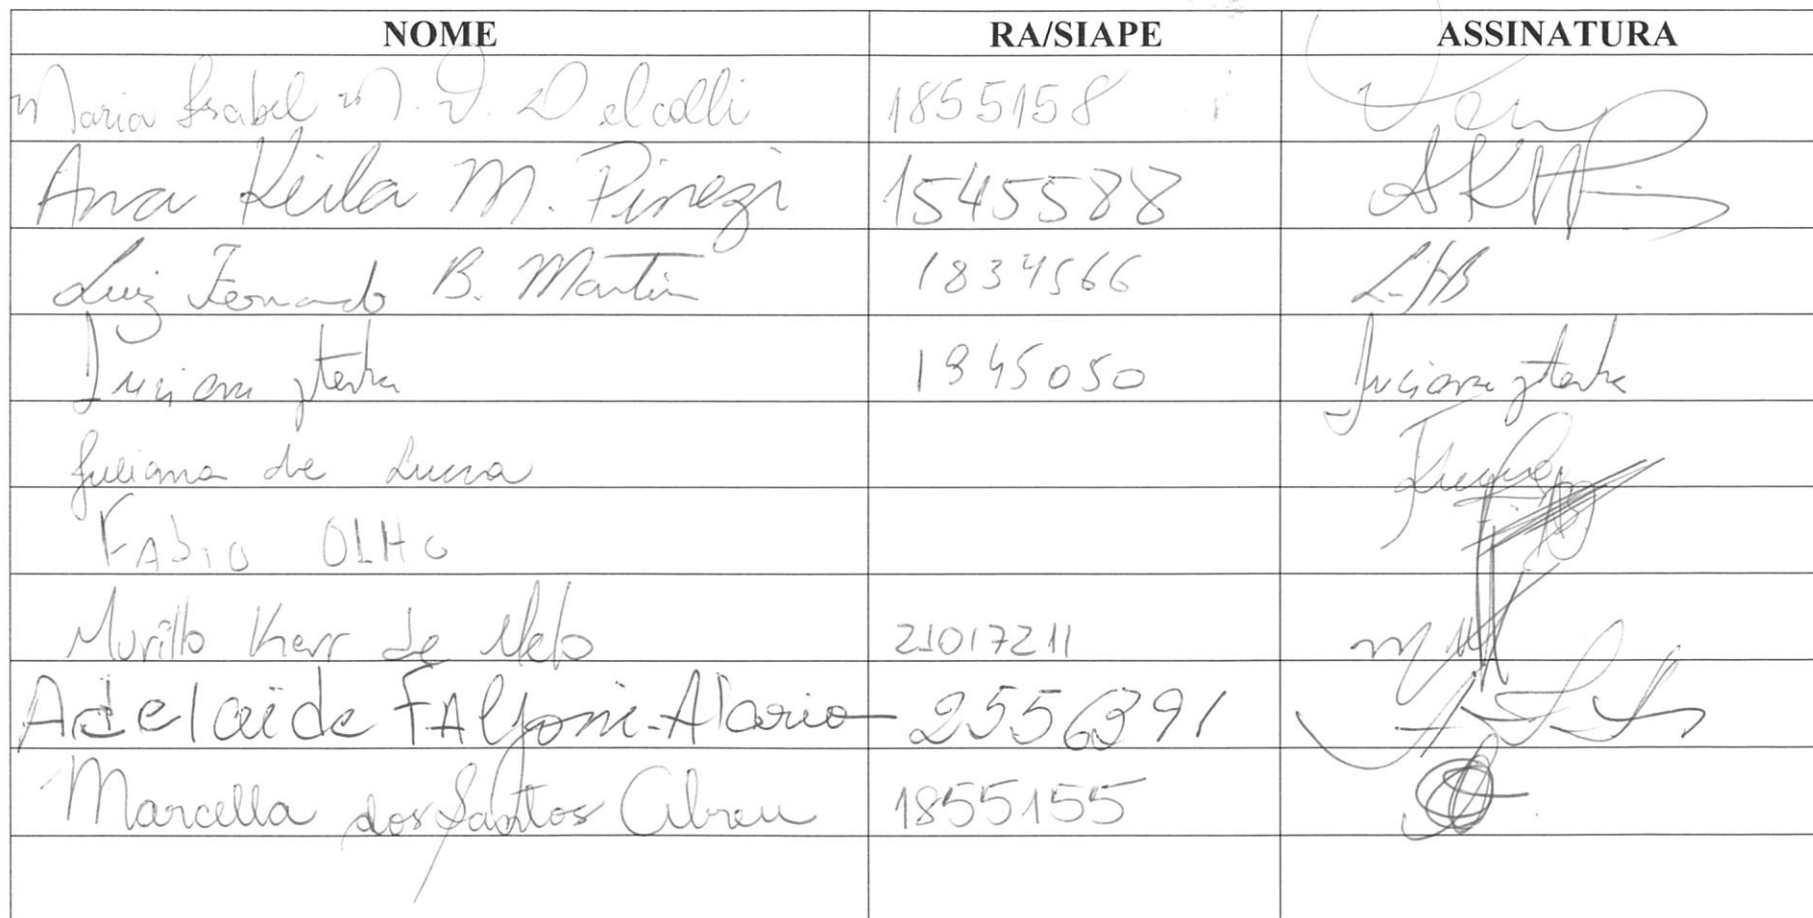 NOME RA/SIAPE ASSINATURA
Maria Isabel M. V. Delcolli 1855158
Ana Keila M. Pinezi 1545588 AKMP
Luiz Fernando B. Martin 1834566 LFB
Luciana 1845050 Luciana
Juliana de Lucca
FABIO OLHO
Murillo Kerr de Melo 21017211
Adelaide FAljoni-Alario 2556391
Marcella dos Santos Abreu 1855155